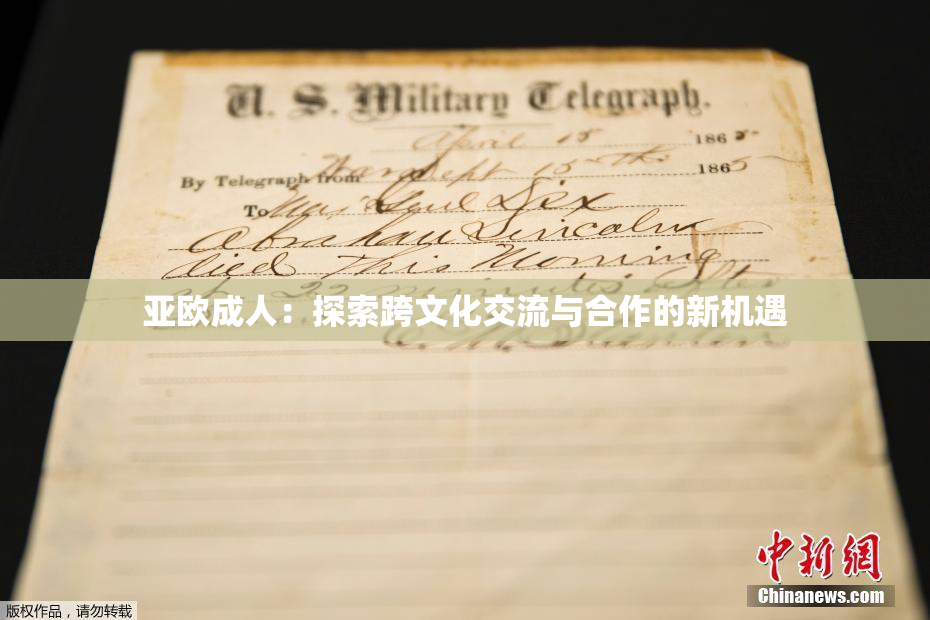 U. S. Military Telegraph.
April 15 1865
By Telegraph from War Dept 15th 1865
To Maj Genl Dix
Abraham Lincoln
died This Morning
at 22 minutes after
亚欧成人：探索跨文化交流与合作的新机遇
中新網
Chinanews.com
版权作品，请勿转载